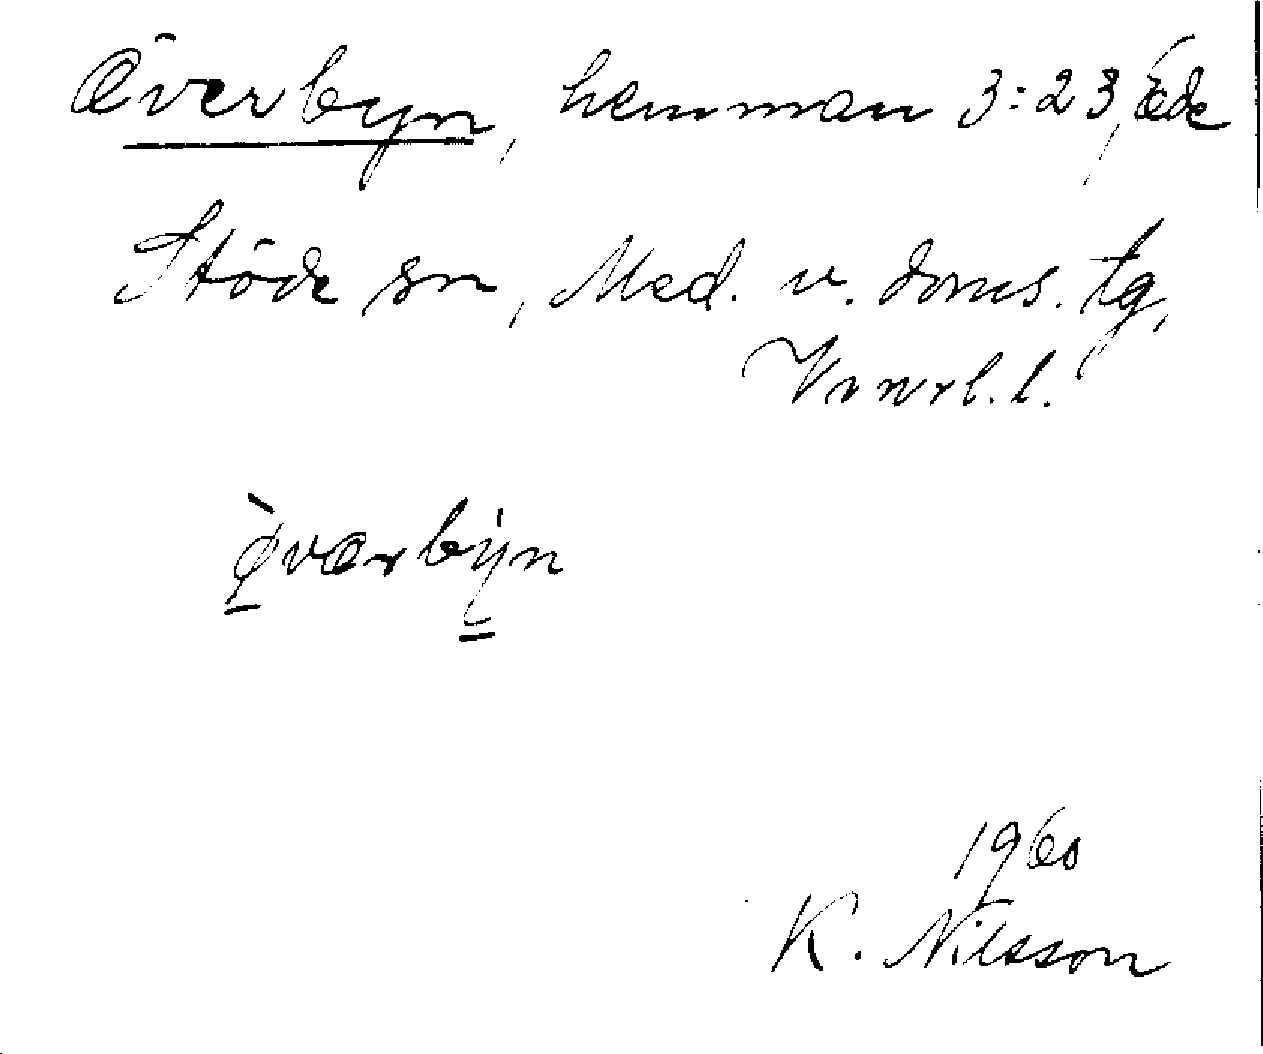 Överbyn, hemman 3:23, Ede
Stöde sn, Med. v. doms. tg,
Vnrl. l.
ø̀værbýn
1960
K. Nilsson